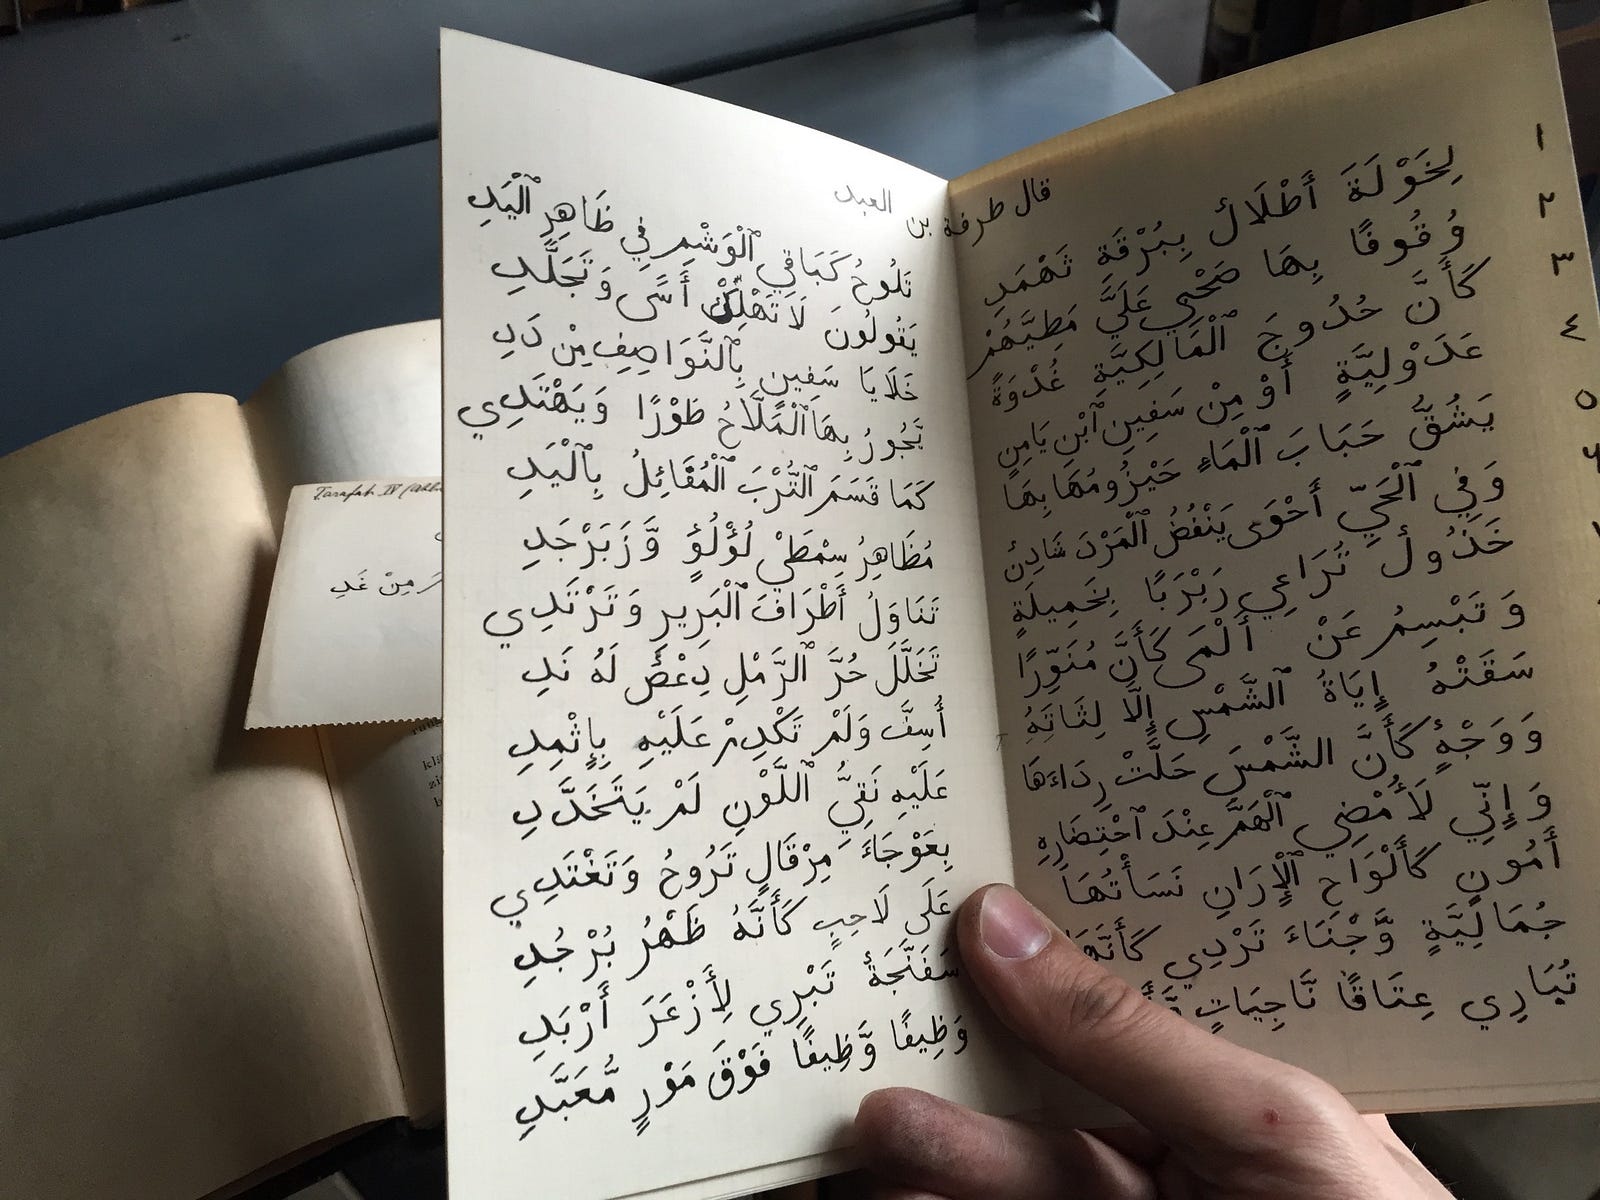 قال طرفة بن العبد
١ لِخَوْلَةَ أَطْلَالٌ بِبُرْقَةِ ثَهْمَدِ تَلُوحُ كَبَاقِي ٱلْوَشْمِ فِي ظَاهِرِ ٱلْيَدِ
٢ وُقُوفًا بِهَا صَحْبِي عَلَيَّ مَطِيَّهُمْ يَقُولُونَ لَا تَهْلِكْ أَسًى وَتَجَلَّدِ
٣ كَأَنَّ حُدُوجَ ٱلْمَالِكِيَّةِ غُدْوَةً خَلَايَا سَفِينٍ بِٱلنَّوَاصِفِ مِنْ دَدِ
٤ عَدَوْلِيَّةٍ أَوْ مِنْ سَفِينِ ٱبْنِ يَامِنٍ يَجُورُ بِهَا ٱلْمَلَّاحُ طَوْرًا وَيَهْتَدِي
٥ يَشُقُّ حَبَابَ ٱلْمَاءِ حَيْزُومُهَا بِهَا كَمَا قَسَمَ ٱلتُّرْبَ ٱلْمُفَائِلُ بِٱلْيَدِ
وَفِي ٱلْحَيِّ أَحْوَى يَنْفُضُ ٱلْمَرْدَ شَادِنٌ مُظَاهِرُ سِمْطَيْ لُؤْلُؤٍ وَّزَبَرْجَدِ
خَذُولٌ تُرَاعِي رَبْرَبًا بِخَمِيلَةٍ تَنَاوَلُ أَطْرَافَ ٱلْبَرِيرِ وَتَرْتَدِي
وَتَبْسِمُ عَنْ أَلْمَى كَأَنَّ مُنَوِّرًا تَخَلَّلَ حُرَّ ٱلرَّمْلِ دِعْصٌ لَهُ نَدِ
سَقَتْهُ إِيَاةُ ٱلشَّمْسِ إِلَّا لِثَاتِهِ أُسِفَّ وَلَمْ تَكْدِمْ عَلَيْهِ بِإِثْمِدِ
وَوَجْهٍ كَأَنَّ الشَّمْسَ حَلَّتْ رِدَاءَهَا عَلَيْهِ نَقِيُّ ٱللَّوْنِ لَمْ يَتَخَدَّدِ
وَإِنِّي لَأُمْضِي ٱلْهَمَّ عِنْدَ ٱحْتِضَارِهِ بِعَوْجَاءَ مِرْقَالٍ تَرُوحُ وَتَغْتَدِي
أَمُونٍ كَأَلْوَاحِ ٱلْإِرَانِ نَسَأْتُهَا عَلَى لَاحِبٍ كَأَنَّهُ ظَهْرُ بُرْجُدِ
جُمَالِيَّةٍ وَّجْنَاءَ تَرْدِي كَأَنَّهَا سَفَنَّجَةٌ تَبْرِي لِأَزْعَرَ أَرْبَدِ
تُبَارِي عِتَاقًا نَّاجِيَاتٍ وَظِيفًا وَّظِيفًا فَوْقَ مَوْرٍ مُّعَبَّدِ
Tarafah IV
مِنْ غَدِ